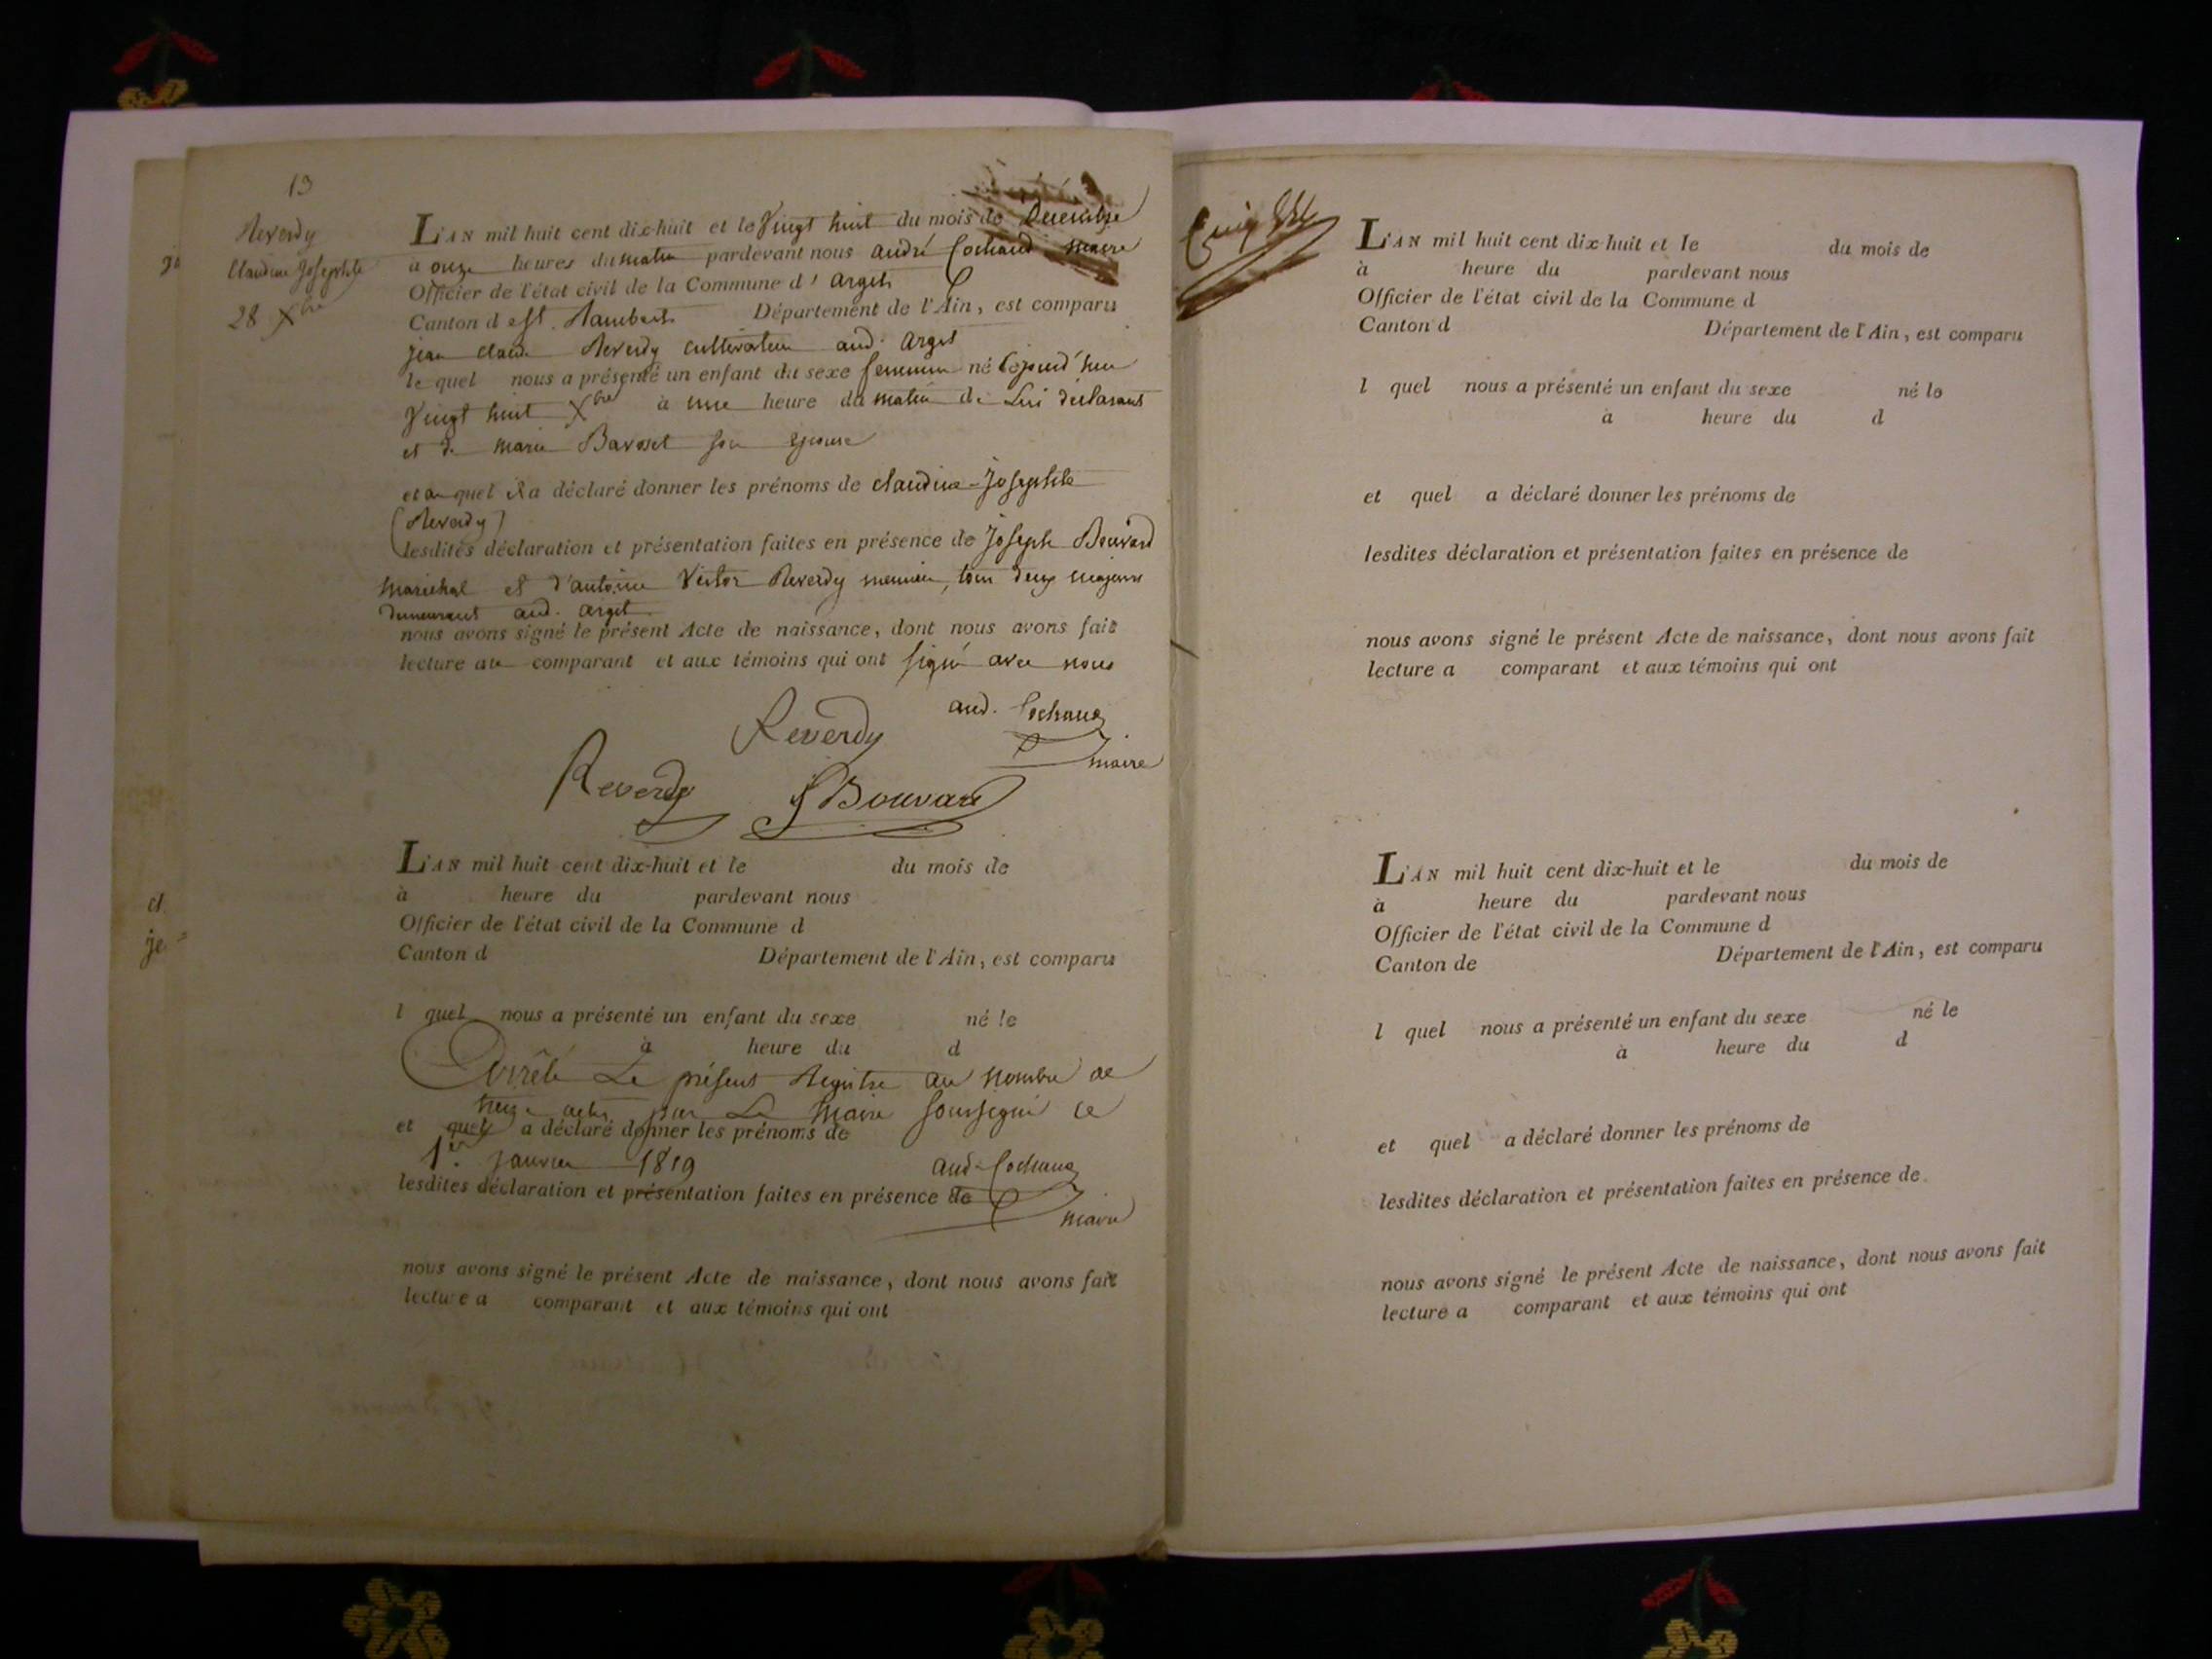 13
Reverdy
Claudine Josephte
28 Xbre
L'AN mil huit cent dix-huit et le Vingt huit du mois de Decembre
a onze heures du matin pardevant nous andré Cochand maire
Officier de l'état civil de la Commune d' Argit
Canton d e St. Rambert Département de l'Ain, est comparu
jean claude Reverdy cultivateur aud. Argit
le quel nous a présenté un enfant du sexe feminin né
Vingt huit Xbre à une heure du matin de Lui déclarant
et de marie Bavoset son epouse
et au quel il a déclaré donner les prénoms de claudine-Josephte
(Reverdy)
lesdites déclaration et présentation faites en présence de Joseph Bouvard
maréchal et d'antoine Victor Reverdy meunier, tous deux majeurs
demeurant aud. argit
nous avons signé le présent Acte de naissance, dont nous avons fait
lecture au comparant et aux témoins qui ont signé avec nous
Reverdy and. Cochand
maire
Reverdy J Bouvard
L'AN mil huit cent dix-huit et le du mois de
à heure du pardevant nous
Officier de l'état civil de la Commune d
Canton d Département de l'Ain, est comparu
l quel nous a présenté un enfant du sexe né le
à heure du d
Arrêté Le présent Registre au nombre de
treize actes par Le Maire soussigné ce
et quel a déclaré donner les prénoms de
1er. janvier 1819 and. Cochand
lesdites déclaration et présentation faites en présence de
maire
nous avons signé le présent Acte de naissance, dont nous avons fait
lecture a comparant et aux témoins qui ont
cl.
je
L'AN mil huit cent dix-huit et le du mois de
à heure du pardevant nous
Officier de l'état civil de la Commune d
Canton d Département de l'Ain, est comparu
l quel nous a présenté un enfant du sexe né le
à heure du d
et quel a déclaré donner les prénoms de
lesdites déclaration et présentation faites en présence de
nous avons signé le présent Acte de naissance, dont nous avons fait
lecture a comparant et aux témoins qui ont
L'AN mil huit cent dix-huit et le du mois de
à heure du pardevant nous
Officier de l'état civil de la Commune d
Canton de Département de l'Ain, est comparu
l quel nous a présenté un enfant du sexe né le
à heure du d
et quel a déclaré donner les prénoms de
lesdites déclaration et présentation faites en présence de
nous avons signé le présent Acte de naissance, dont nous avons fait
lecture a comparant et aux témoins qui ont